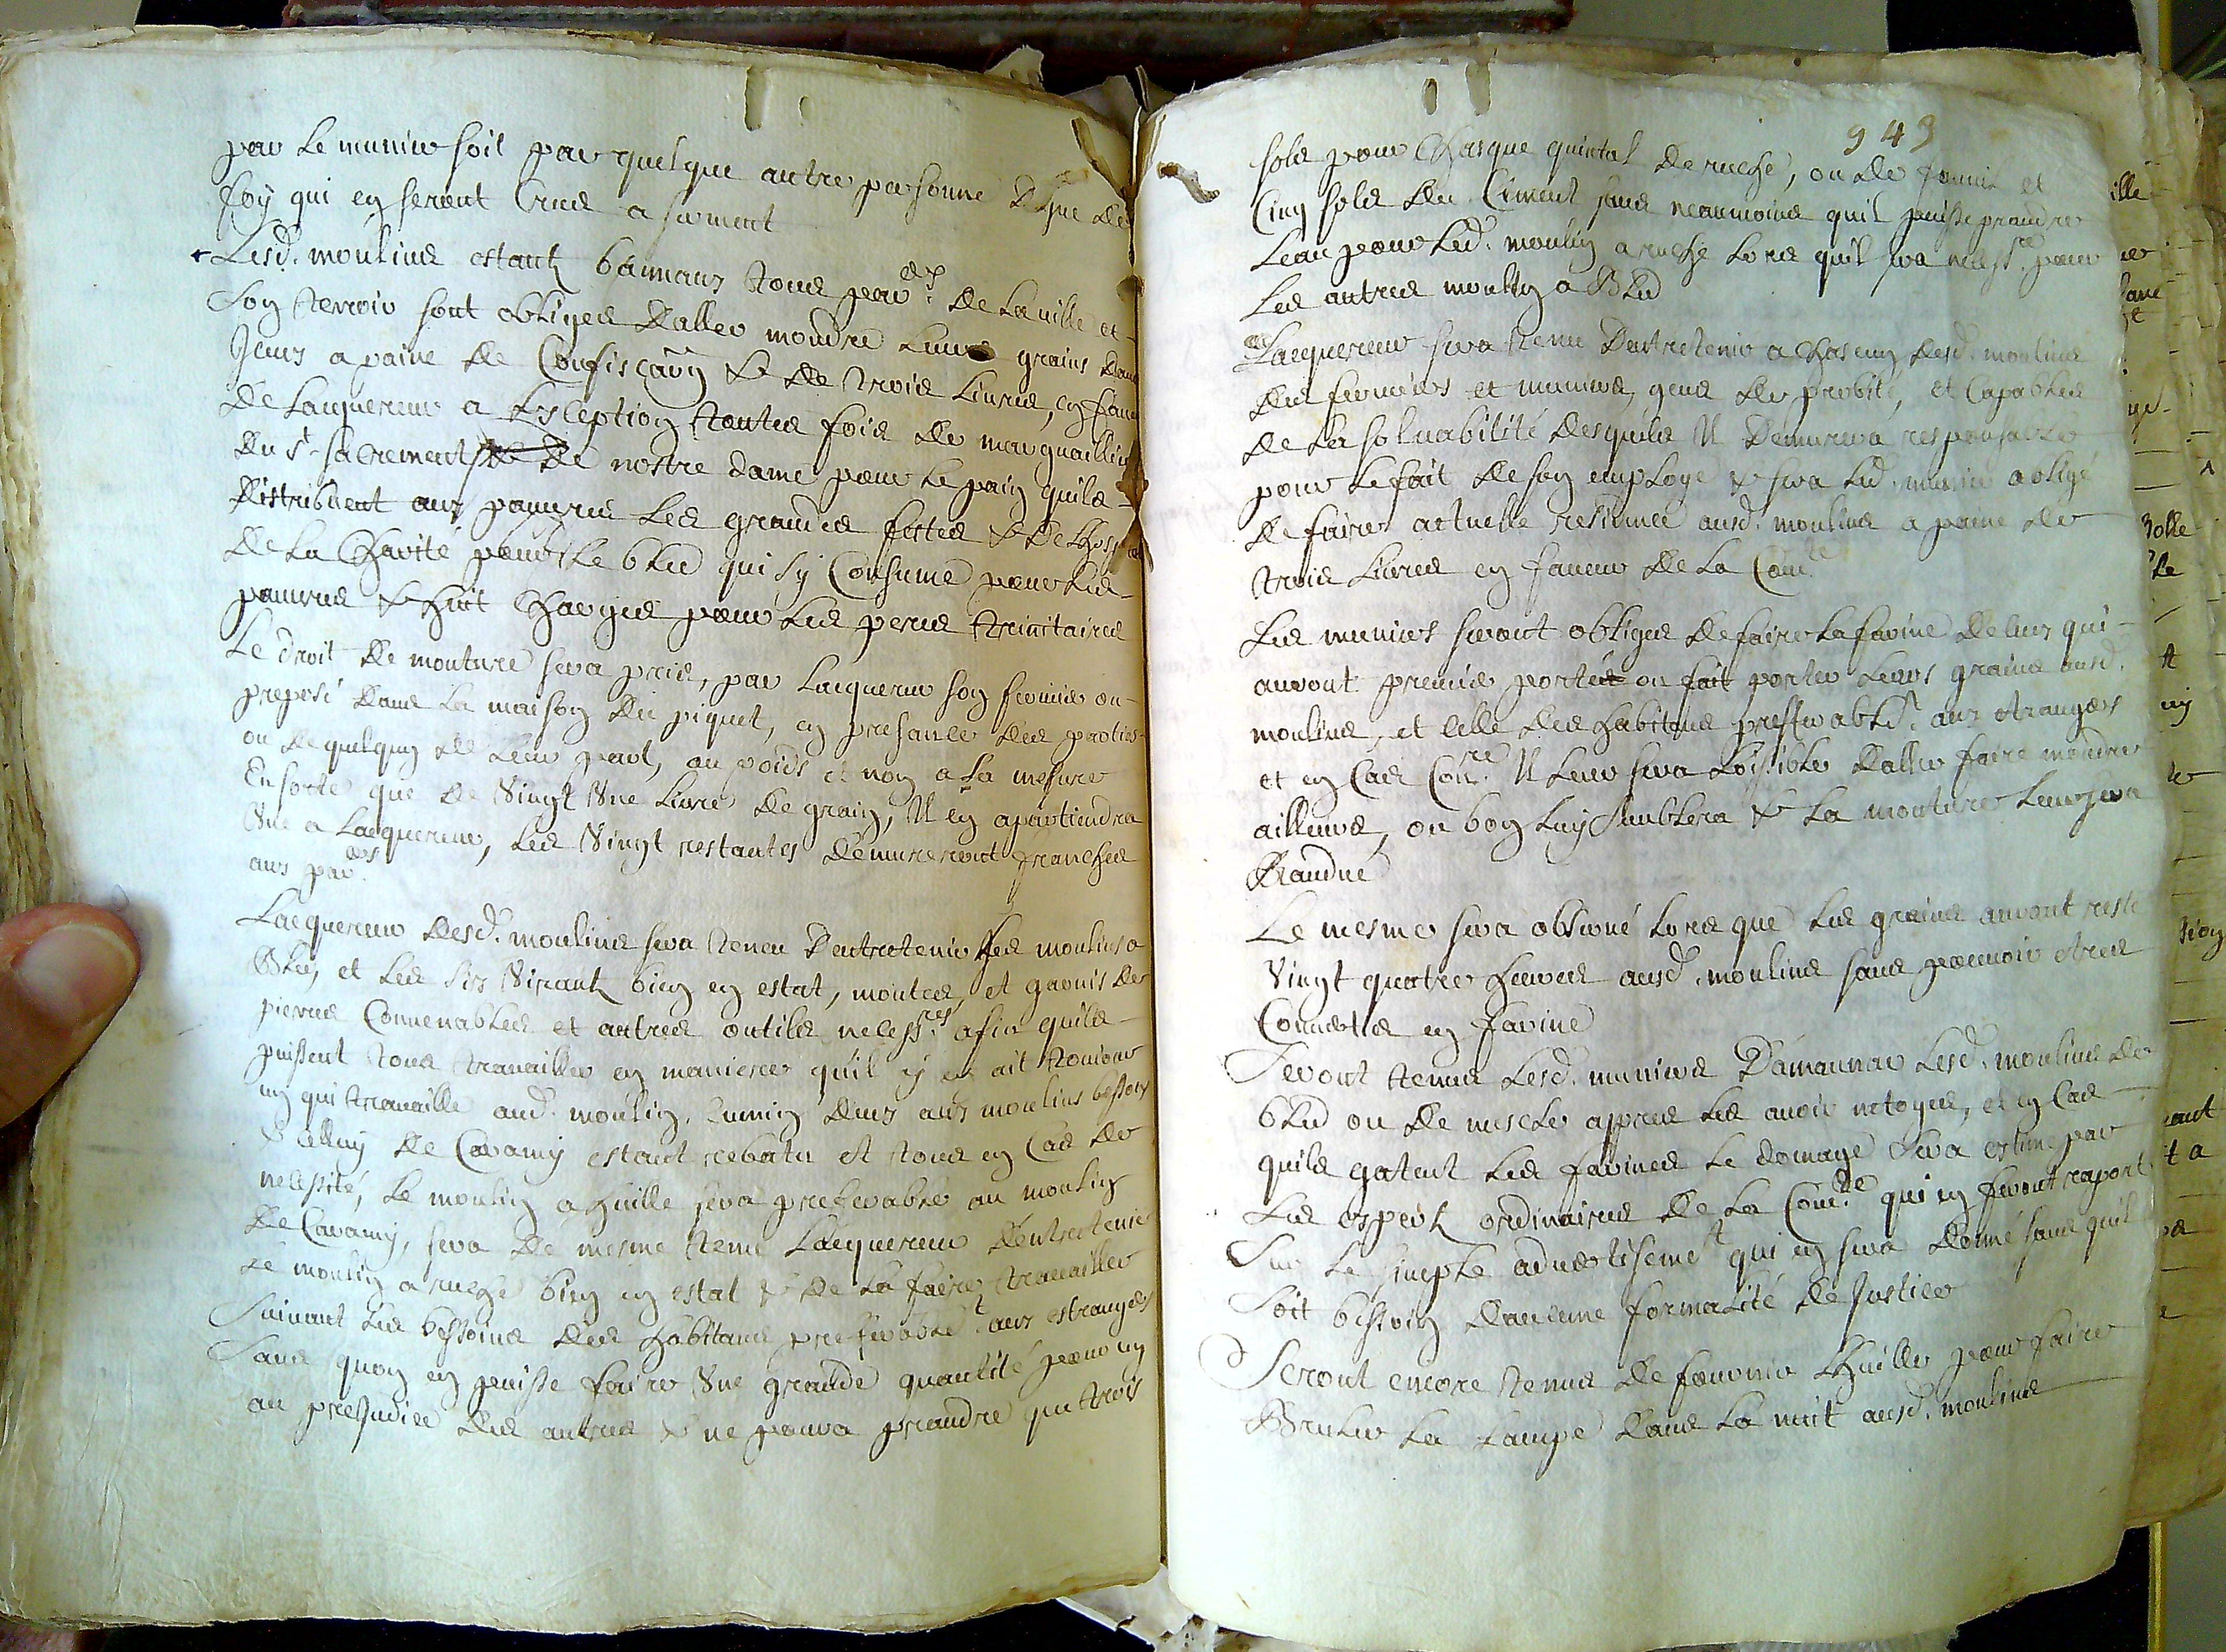 par le munier soit par quelque autre personne digne de
foy qui en seront crues a serment
Lesd. moulins estantz bannaux tous parers. de la ville et
son terroir sont obliges daller moudre leurs grains dans
iceux a paine de confiscaõn & de trois livres, en faveur
de lacquereur a lexception toutes fois de marguilliers
du st. sacrement de nostre dame pour le pain quils
distribuent aux pauvres les grandes festes & de lhospital
de la charité pour le bled qui sy consume pour les
pauvres & huit charges pour les peres trinitaires
Le droit de mouture sera pris, par lacquereur son fermier ou
preposé dans la maison du piquet, en presance des parties
ou de quelquun de leur part, au poids et non a la mesure
En sorte que de vingt une livre de grain, il en apartiendra
une a lacquereur, les vingt restantes demureront franches
aux parers.
Lacquereur desd. moulins sera tenu dentretenir les moulins a
bled, et les six virantz bien en estat, montes, et garnis de
pierres convenables et autres outils necessres. afin quils
puissent tous travailler en maniere quil y en ait toujour
un qui travaille aud. moulin, deux aux moulins bessons
& celluy de Caramy estant rebatu et tous en cas de
necessité, le moulin a huille sera preferable au moulin
de Caramy, sera de mesme tenu lacquereur dentretenir
le moulin a rusche bien en estat & de la faire travailler
suivant les bessoins des habitans preferablet. aux estrangers
sans quon en puisse faire une grande quantité pour un
au prejudice des autres & ne poura prandre que trois
943
sols pour chasque quintal de rusche, ou de fauvis et
cinq sols du ciment sans neanmoins quil puisse prandre
leau pour led. moulin a rusche lors quil sera necessre. pour
les autres moulin a bled
Lacquereur sera tenu dentretenir a chascun desd. moulins
des fermiers et muniers, gens de probité, et capables
de la solvabilité desquels il demurera responsable
pour le fait de son employe & sera led. munier obligé
de faire actuelle residence ausd. moulins a paine de
trois livres en faveur de la comté.
Les muniers seront obliges de faire la farine de ceux qui
auront premier portés ou fait porter leurs grains ausd.
moulins, et celle des habitans preferablet. aux etrangers
et en cas conre. il leur sera loisible daller faire moudre
ailleurs, ou bon luy semblera & la mouture leur sera
randue
Le mesme sera observé lors que les grains auront resté
vingt quatre heures ausd. moulins sans pouvoir etres
converties en farine
Seront tenus lesd. muniers damaunar lesd. moulins de
bled ou de mescle appres les avoir netoyes, et en cas
quils gatent les farines le domage sera estimé par
les expertz ordinaires de la comté. qui en feront raport
sur le simple advertisemt. qui en sera donné sans quil
soit bessoin daucune formalité de justice
Seront encore tenus de fournir lhuille pour faire
bruler la lampe dans la nuit ausd. moulins